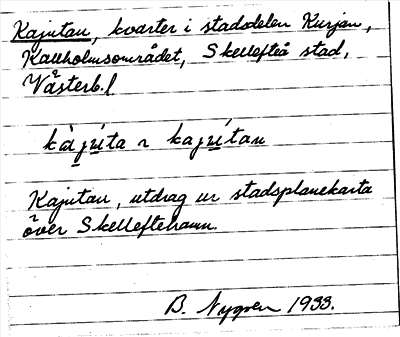 Kajutan, kvarter i stadsdelen Kurjan,
Kallholmsområdet, Skellefteå stad,
Västerb. l
kàjúta ~ kajútan
Kajutan, utdrag ur stadsplanekarta
över Skelleftehamn.
B. Nygren 1933.